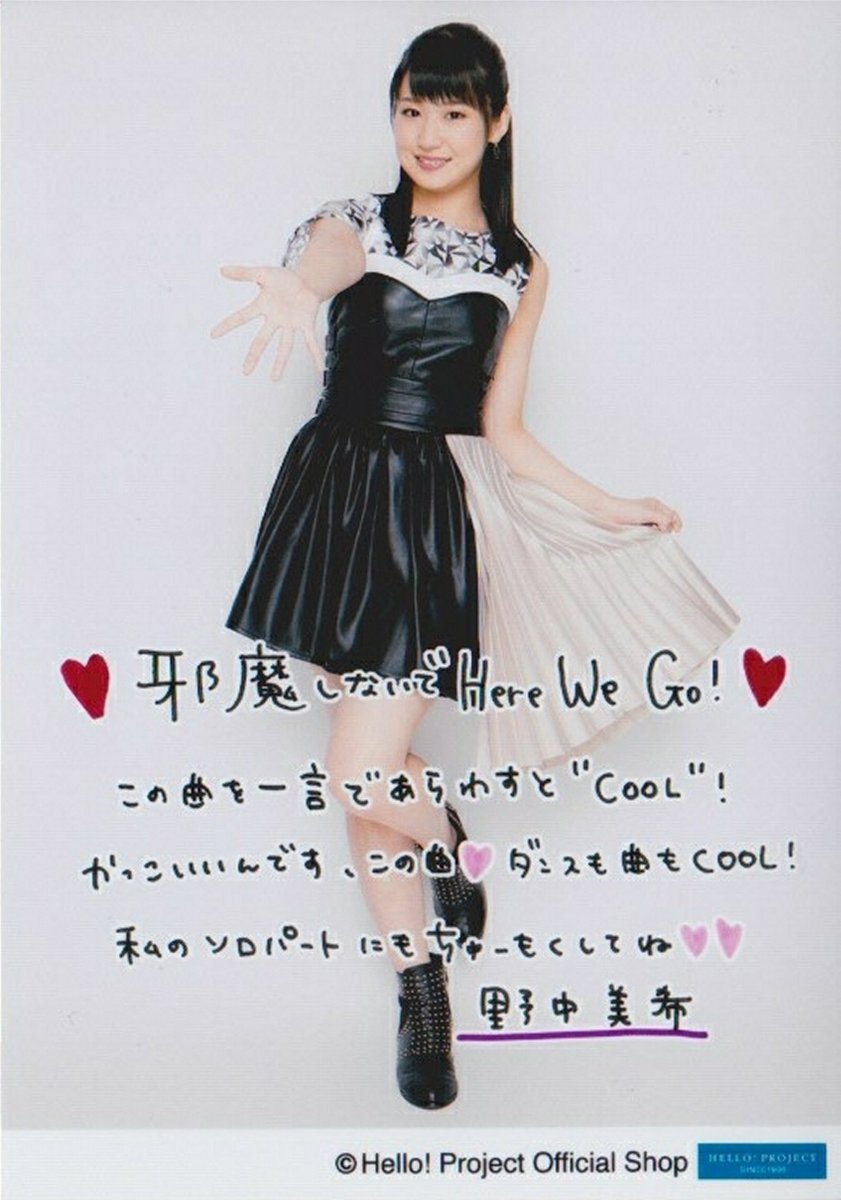 邪魔しないで Here We Go!
この曲を一言であらわすと"COOL"!
かっこいいんです、この曲 ダンスも曲もCOOL!
私のソロパートにもちゅーもくしてね
野中美希
©Hello! Project Official Shop
HELLO! PROJECT
SINCE 1998